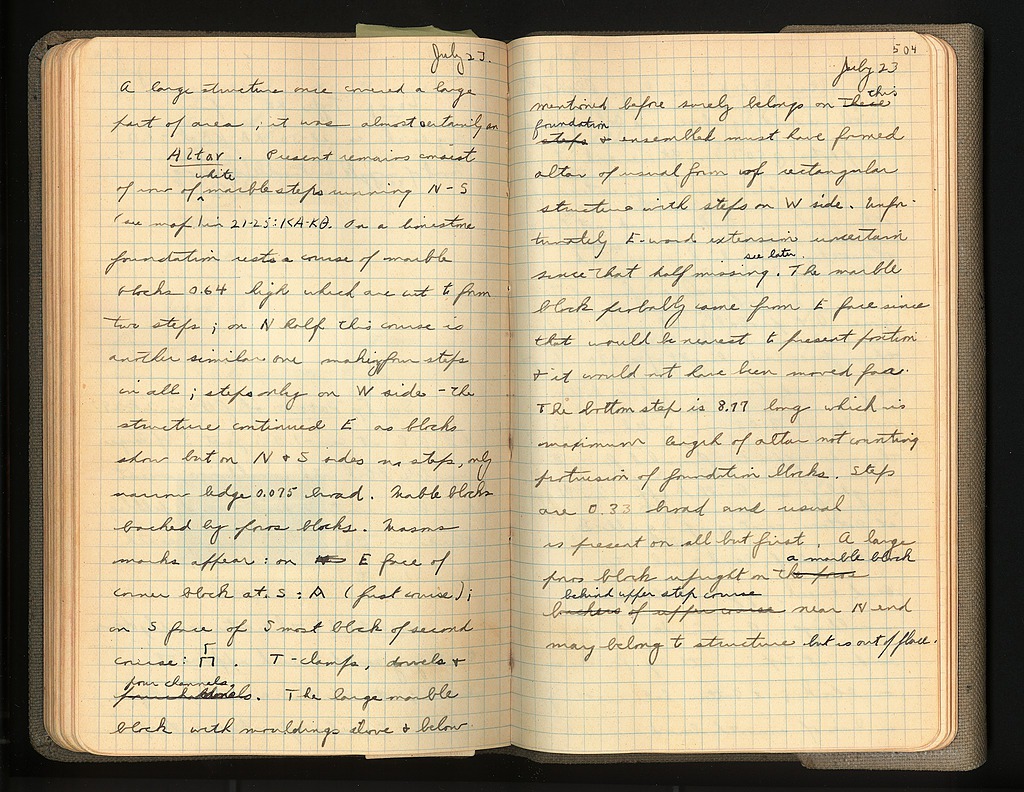 July 23.
A large structure once covered a large
part of area ; it was almost certainly an
Altar. Present remains consist
white
of row of ^ marble steps running N-S
(see map) in 21-25:ΚΑ-ΚΘ. On a limestone
foundation rests a course of marble
blocks 0.64 high which are cut to form
two steps ; on N half this course is
another similar one making four steps
in all ; steps only on W side - the
structure continued E as blocks
show but on N & S sides no steps, only
narrow ledge 0.075 broad. Marble blocks
backed by poros blocks. Masons
marks appear : on E face of
corner block at S : A (first course) ;
on S face of S most block of second
course : Π Γ. T-clamps, dowels &
pour channels.
The large marble
block with mouldings above & below
504
July 23
this
mentioned before surely belongs on these
foundation
steps & ensemble must have formed
altar of usual form of rectangular
structure with steps on W side. Unfor-
tunately E-ward extension uncertain
see later.
since that half missing. The marble
block probably came from E face since
that would be nearest to present position
& it would not have been moved far.
The bottom step is 8.97 long which is
maximum length of altar not counting
protrusion of foundation blocks. Steps
are 0.33 broad and usual
is present on all but first. A large
a marble block
poros block upright on the poros
behind upper step course
backers of upper course near N end
may belong to structure but is out of place.